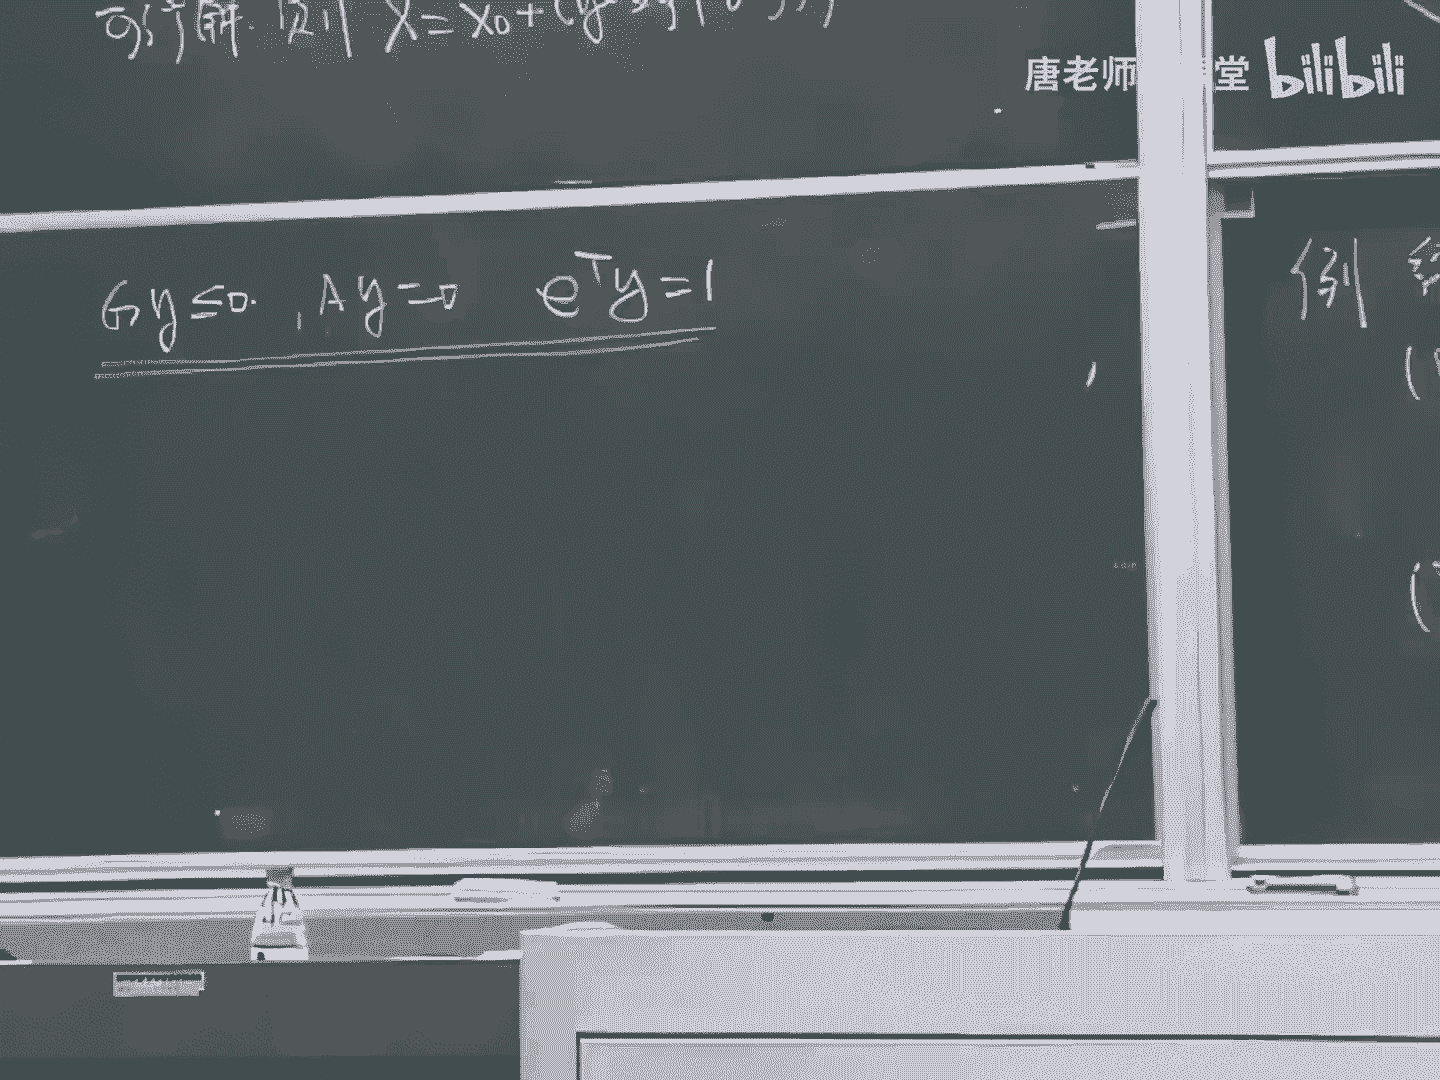 可行解. 则 X = x₀ +
唐老师 堂 bilibili
Gy≤0. , Ay=0 eᵀy=1
例
(
(